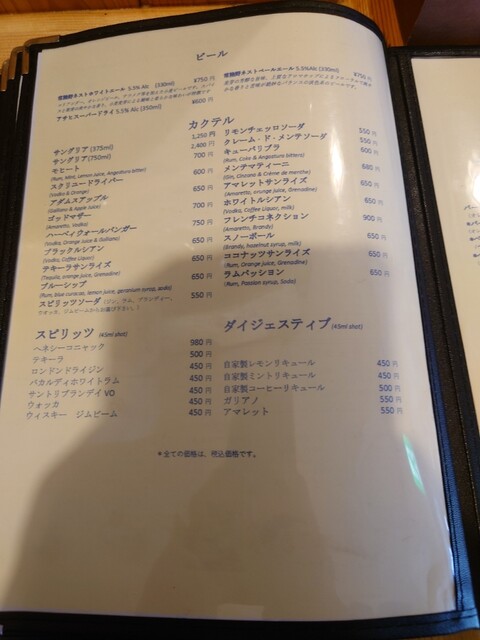 ビール
常陸野ネストホワイトエール 5.5%Alc (330ml) ¥750
アサヒスーパードライ 5.5% Alc (350ml) ¥600
常陸野ネストペールエール 5.5%Alc (330ml) ¥750
カクテル
サングリア (375ml) 1,250 円
サングリア(750ml) 2,400 円
モヒート 700 円
(Rum, Mint, Lemon Juice, Angostura bitter)
スクリュードライバー 600 円
(Vodka & Orange)
アダムスアップル 650 円
(Galliano & Apple Juice)
ゴッドマザー 700 円
(Amaretto, Vodka)
ハーベイウォールバンガー 750 円
(Vodka, Orange Juice & Galliano)
ブラックルシアン 650 円
(Vodka, Coffee Liquor)
テキーラサンライズ 650 円
(Tequila, orange juice, Grenadine)
ブルーシップ 650 円
(Rum, blue curacao, lemon juice, geranium syrup, soda)
スピリッツソーダ (ジン、ラム、ブランディー、 550 円
ウオッカ、ジムビームからお選び下さい。)
リモンチェッロソーダ 550 円
クレーム・ド・メンテソーダ 550 円
キューバリブラ 600 円
(Rum, Cola & Angostura bitters)
メンテマティーニ 680 円
(Gin, Cinzano & Crème de menthe)
アマレットサンライズ 650 円
(Amaretto, orange juice, Grenadine)
ホワイトルシアン 650 円
(Vodka, Coffee Liquor, milk)
フレンチコネクション 900 円
(Amaretto, Brandy)
スノーボール 650 円
(Brandy, hazelnut syrup, milk)
ココナッツサンライズ 650 円
(Rum, Orange juice, Grenadine)
ラムパッション 650 円
(Rum, Passion syrup, Soda)
スピリッツ (45ml shot)
ヘネシーコニャック 980 円
テキーラ 500 円
ロンドンドライジン 450 円
バカルディホワイトラム 450 円
サントリブランデイ VO 450 円
ウォッカ 450 円
ウィスキー ジムビーム 450 円
ダイジェスティブ (45ml shot)
自家製レモンリキュール 450 円
自家製ミントリキュール 450 円
自家製コーヒーリキュール 500 円
ガリアノ 550 円
アマレット 550 円
*全ての価格は、税込価格です。